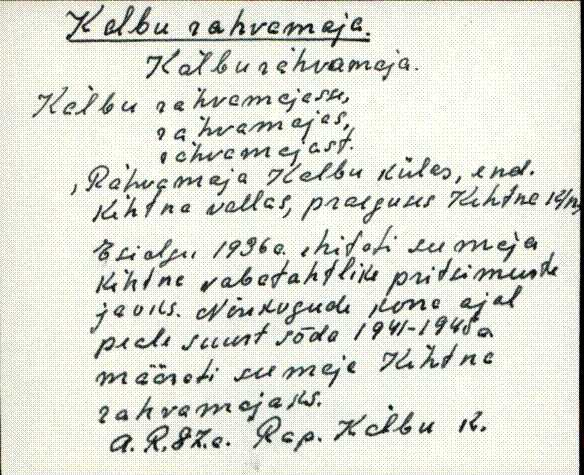 Kelbu rahvamaja.
Kelbu rahvamaja.
Kelbu rahvamajasse,
rahvamajas,
rahvamajast.
, Rahvamaja Kelbu külas, end.
Kehtna vallas, praeguses Kehtna k/n,
Esialgu 1936a. ehitati see maja
Kehtna vabatahtlike pritsimeeste
jaoks. Nõukogude korra ajal
peale suurt sõda 1941-1945a
määrati see maja Kehtna
rahvamajaks.
A. R. 87.a. Rap. Kelbu k.